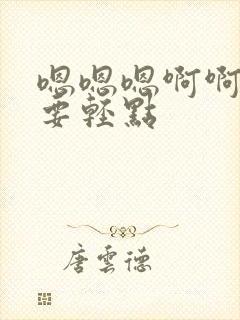 嗯嗯嗯啊啊
要輕點
唐雲德